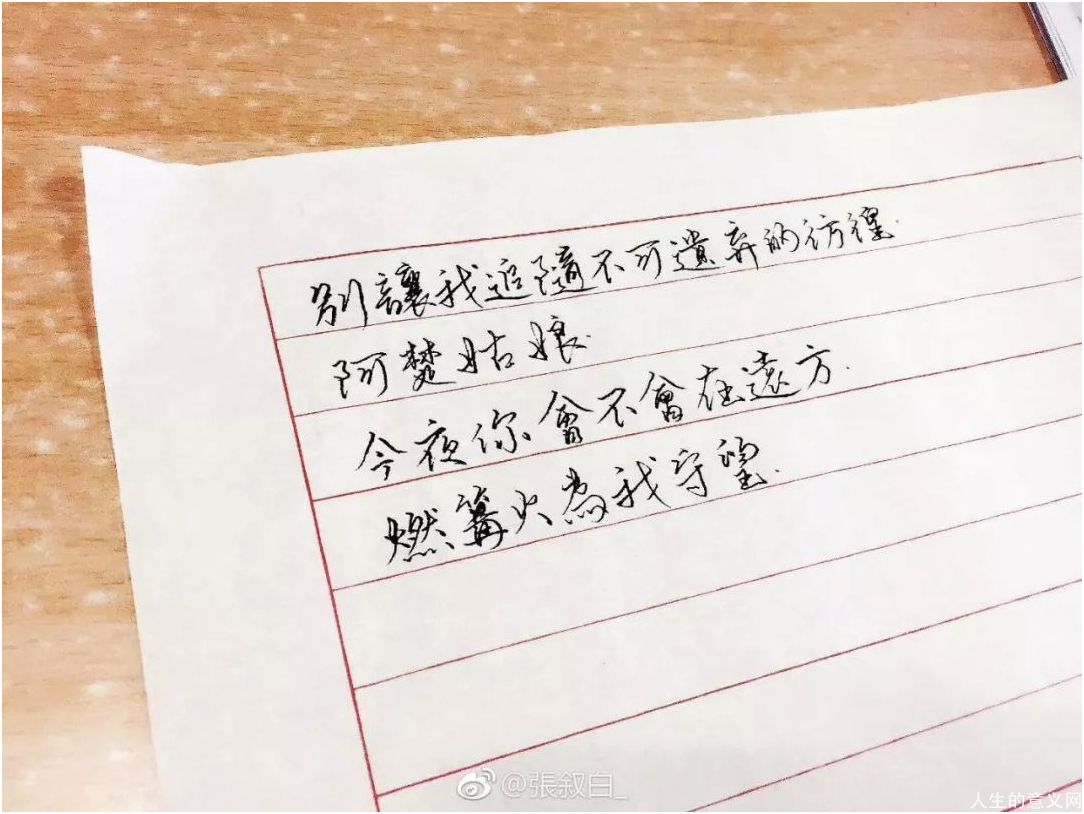 别讓我追隨不可遺弃的彷徨.
阿楚姑娘.
今夜你會不會在遠方.
燃篝火為我守望.
@張叙白_
人生的意义网